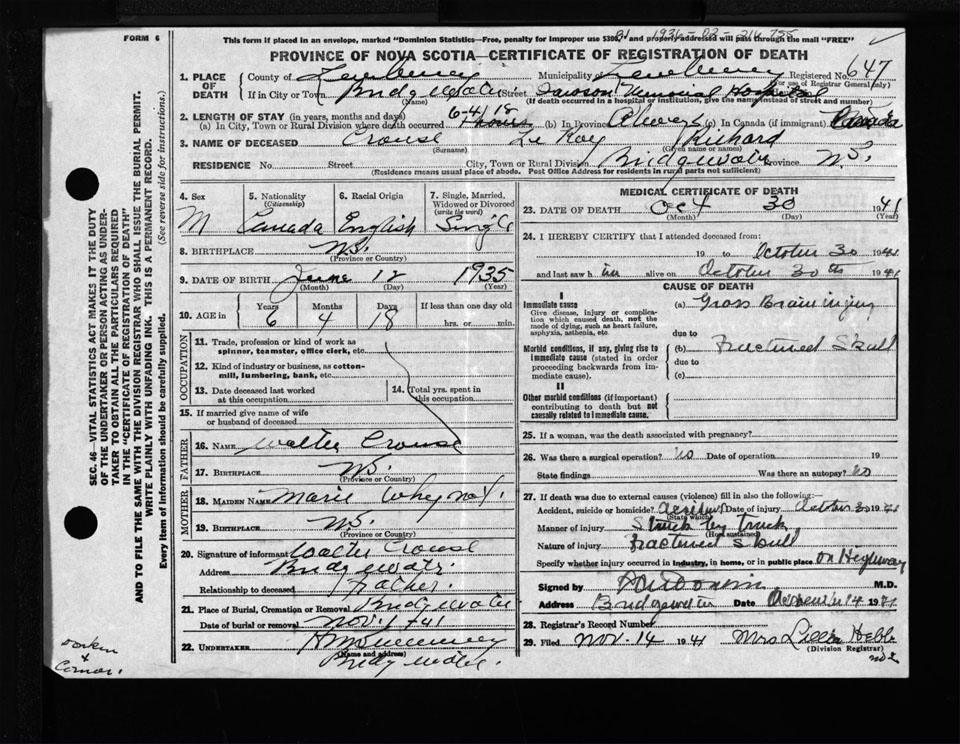 FORM 6
This form if placed in an envelope, marked "Dominion Statistics—Free, penalty for improper use $300, and properly addressed will pass through the mail "FREE"
PROVINCE OF NOVA SCOTIA—CERTIFICATE OF REGISTRATION OF DEATH
1. PLACE OF DEATH County of Lunenburg Municipality of Lunenburg Registered No. 647
(For use of Registrar General only)
If in City or Town Bridgewater Street Dawson Memorial Hospital
(Name) (If death occurred in a hospital or institution, give the name instead of street and number)
2. LENGTH OF STAY (in years, months and days) 6-4-18
(a) In City, Town or Rural Division where death occurred hours (b) In Province Always (c) In Canada (if immigrant) Canada
3. NAME OF DECEASED Crouse Le Roy Richard
(Surname) (Given name or names)
RESIDENCE No. Street City, Town or Rural Division Bridgewater Province N.S.
(Residence means usual place of abode. Post Office Address for residents in rural parts not sufficient)
4. Sex M
5. Nationality (Citizenship) Canada
6. Racial Origin English
7. Single, Married, Widowed or Divorced (write the word) Single
8. BIRTHPLACE N.S.
(Province or Country)
9. DATE OF BIRTH June 12 1935
(Month) (Day) (Year)
10. AGE in Years 6 Months 4 Days 18 If less than one day old hrs. or min.
OCCUPATION
11. Trade, profession or kind of work as spinner, teamster, office clerk, etc.
12. Kind of industry or business, as cotton-mill, lumbering, bank, etc.
13. Date deceased last worked at this occupation
14. Total yrs. spent in this occupation
15. If married give name of wife or husband of deceased
FATHER
16. NAME Walter Crouse
17. BIRTHPLACE N.S.
(Province or Country)
MOTHER
18. MAIDEN NAME Marie Whynot
19. BIRTHPLACE N.S.
(Province or Country)
20. Signature of informant Walter Crouse
Address Bridgewater
Relationship to deceased Father
21. Place of Burial, Cremation or Removal Bridgewater
Date of burial or removal Nov. 1/41
22. UNDERTAKER
(Name and address)
Bridgewater
MEDICAL CERTIFICATE OF DEATH
23. DATE OF DEATH Oct 30 1941
(Month) (Day) (Year)
24. I HEREBY CERTIFY that I attended deceased from:
19 to October 30 1941
and last saw him alive on October 30th 1941
CAUSE OF DEATH
I
Immediate cause
Give disease, injury or complication which caused death, not the mode of dying, such as heart failure, asphyxia, asthenia, etc.
(a) Gross Brain injury
due to
Morbid conditions, if any, giving rise to immediate cause (stated in order proceeding backwards from immediate cause).
(b) Fractured Skull
due to
(c)
II
Other morbid conditions (if important) contributing to death but not causally related to immediate cause.
25. If a woman, was the death associated with pregnancy?
26. Was there a surgical operation? No Date of operation 19
State findings Was there an autopsy? No
27. If death was due to external causes (violence) fill in also the following:—
Accident, suicide or homicide? Accident Date of injury October 30 1941
(State which)
Manner of injury Struck by truck
(How sustained)
Nature of injury Fractured Skull
Specify whether injury occurred in industry, in home, or in public place on Highway
Signed by M.D.
Address Bridgewater Date 14 1941
28. Registrar's Record Number
29. Filed Nov. 14 1941 Mrs Hebb
(Division Registrar)
SEC. 46—VITAL STATISTICS ACT MAKES IT THE DUTY
OF THE UNDERTAKER OR PERSON ACTING AS UNDER-
TAKER TO OBTAIN ALL THE PARTICULARS REQUIRED
IN THE "CERTIFICATE OF REGISTRATION OF DEATH"
AND TO FILE THE SAME WITH THE DIVISION REGISTRAR WHO SHALL ISSUE THE BURIAL PERMIT.
WRITE PLAINLY WITH UNFADING INK. THIS IS A PERMANENT RECORD.
Every item of information should be carefully supplied. (See reverse side for instructions).